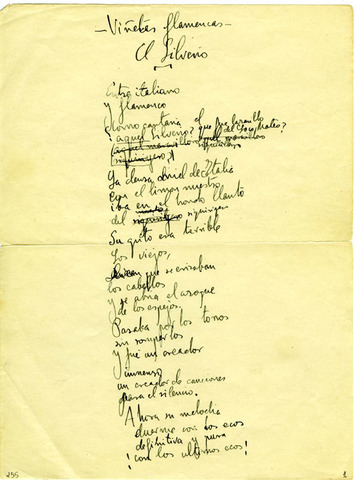 –Viñetas flamencas–
A Silverio
Entre italiano
y flamenco
¿como cantaria
¿aquel Silverio?
La densa miel de Italia
con el limon nuestro
iba en el hondo llanto
del
Su grito era terrible
Los viejos,
dicen que se erizaban
los cabellos
y se abria el azogue
de los espejos.
Pasaba por los tonos
sin romperlos
y fué un creador
inmenso
un creador de canciones
para el silencio.
Ahora su melodia
duerme con los ecos
definitiva y pura
¡con los ultimos ecos!
255 1